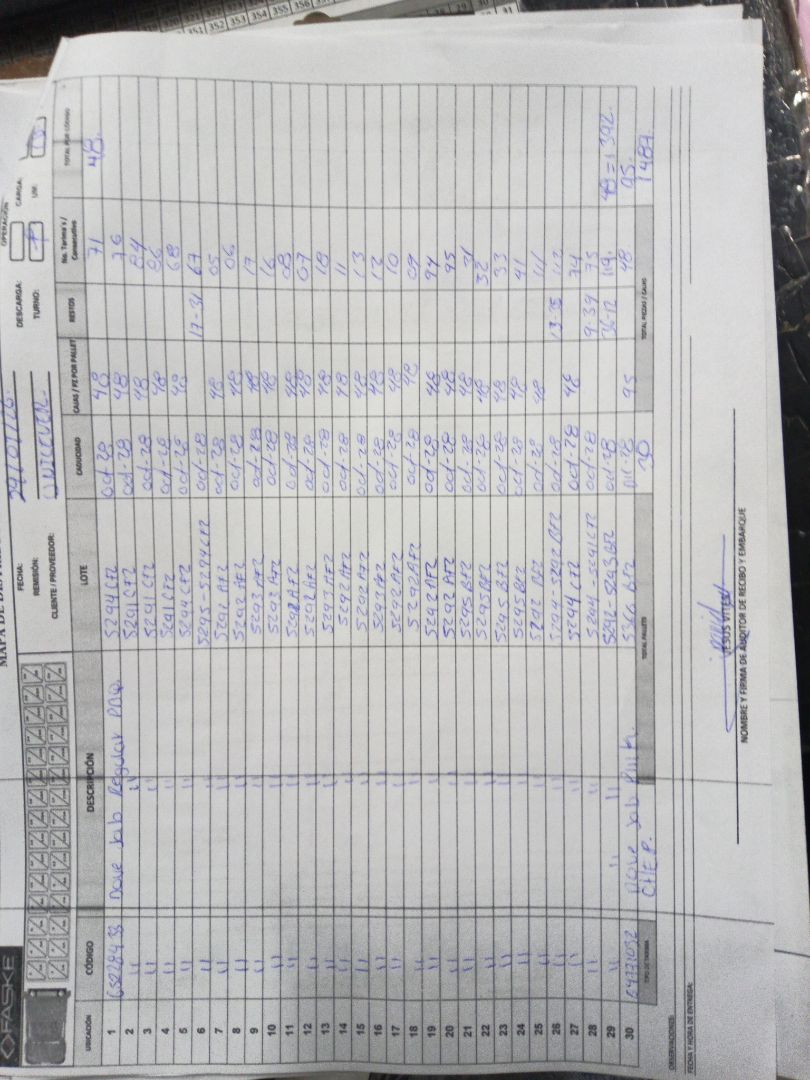 FASKE
MAPA DE
OPERACIÓN
FECHA: 29/01/26. DESCARGA: CARGA:
REMISIÓN: TURNO: UM:
CLIENTE / PROVEEDOR: UNILEVER.
UBICACIÓN CÓDIGO DESCRIPCIÓN LOTE CADUCIDAD CAJAS / PZ POR PALLET RESTOS No. Tarima's / Consecutivo TOTAL POR CÓDIGO
1 68228438 Dove Jab Regular PBQ. 5294 CF2 oct-28 48 71 48.
2 " " 5291 CF2 oct-28 48 76
3 " " 5291 CF2 oct-28 48 84
4 " " 5291 CF2 oct-28 48 86
5 " " 5294 CF2 oct-28 48 68
6 " " 5295-5294 CF2 oct-28 17-31 67
7 " " 5292 AF2 oct-28 48 05
8 " " 5292 AF2 oct-28 48 06
9 " " 5293 AF2 oct-28 48 17
10 " " 5293 AF2 oct-28 48 16
11 " " 5292 AF2 oct-28 48 08
12 " " 5292 AF2 oct-28 48 07
13 " " 5293 AF2 oct-28 48 18
14 " " 5292 AF2 oct-28 48 11
15 " " 5292 AF2 oct-28 48 13
16 " " 5292 AF2 oct-28 48 12
17 " " 5292 AF2 oct-28 48 10
18 " " 5292 AF2 oct-28 48 09
19 " " 5292 AF2 oct-28 48 94
20 " " 5292 AF2 oct-28 48 95
21 " " 5295 BF2 oct-28 48 31
22 " " 5295 BF2 oct-28 48 32
23 " " 5295 BF2 oct-28 48 33
24 " " 5295 BF2 oct-28 48 41
25 " " 5292 BF2 oct-28 48
26 " " 5294-5292 BF2 oct-28 13-35 112
27 " " 5294 CF2 oct-28 48 74
28 " " 5294-5291 CF2 oct-28 9-39 75
29 " " 5292-5293 BF2 oct-28 36-12 119. 48=1392.
30 64771032 Dove Jab 5366 BF2 dic-28 95 48 95.
TIPO DE TARIMA CHEP. TOTAL PALLETS 30 TOTAL PIEZAS / CAJAS 1487
OBSERVACIONES:
FECHA Y HORA DE ENTREGA:
JESUS VITE
NOMBRE Y FIRMA DE AUDITOR DE RECIBO Y EMBARQUE